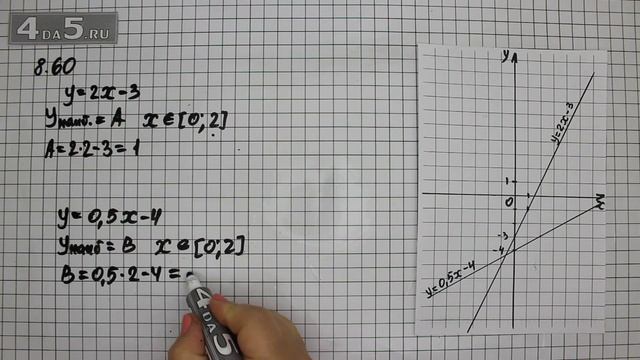 4DA5.RU
8.60
y=2x-3
Yнаиб.=A x∈[0;2]
A=2·2-3=1
y=0,5x-4
Yнаиб=B x∈[0;2]
B=0,5·2-4=
4DA5
y
y=2x-3
1
0
-3
-4
y=0,5x-4